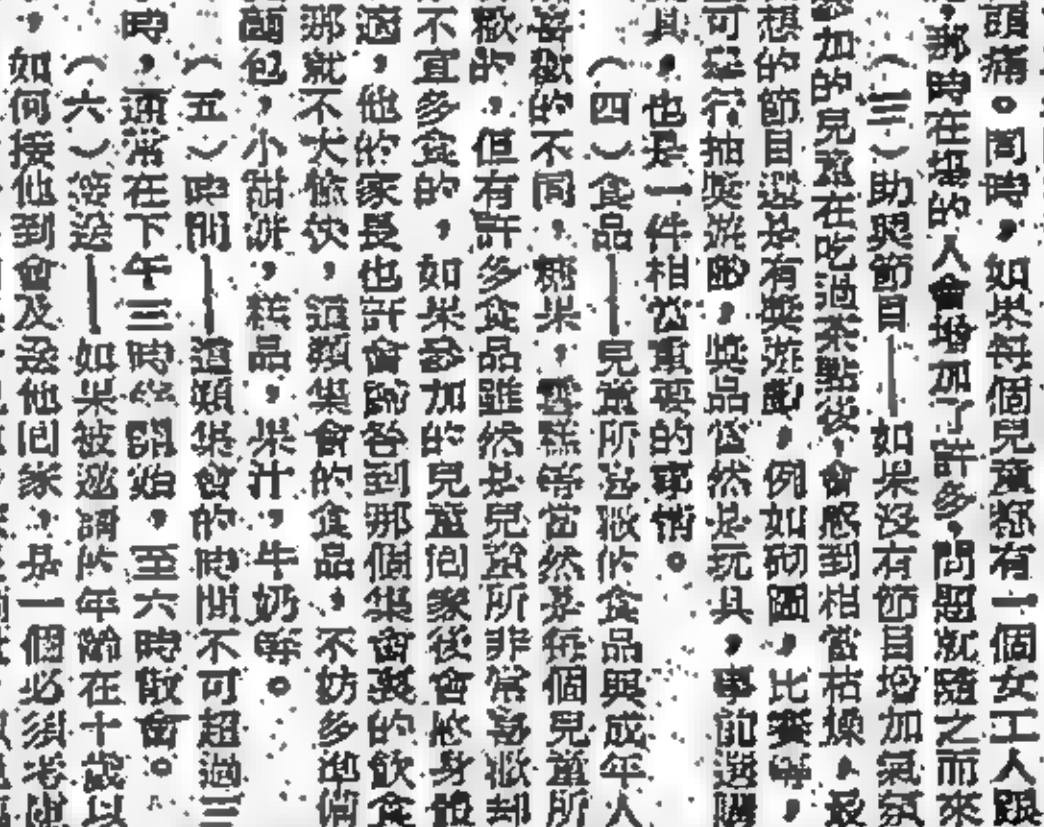 頭痛。同時，如果每個兒童都有一個女工人跟
，那時在場的人會增加了許多，問題就隨之而來
（三）助興節目——如果沒有節目增加氣氛
參加的兒童在吃過茶點後，會感到相當枯燥，最
想的節目還是有獎遊戲，例如砌圖，比賽等，
可舉行抽獎遊戲，獎品當然是玩具，事前選購
具，也是一件相當重要的事情。
（四）食品——兒童所喜歡的食品與成年人
喜歡的不同，糖果，雪糕等當然是每個兒童所
歡的，但有許多食品雖然是兒童所非常喜歡却
不宜多食的，如果參加的兒童回家後會感身體
適，他的家長也許會歸咎到那個集會裏的飲食
那就不大愉快，這類集會的食品，不妨多備
麵包，小甜餅，糕品，果汁，牛奶等。
（五）時間——這類集會的時間不可超過三
時，通常在下午三時半開始，至六時散會。
（六）接送——如果被邀請的年齡在十歲以
，如何接他到會及送他回家，是一個必須考慮